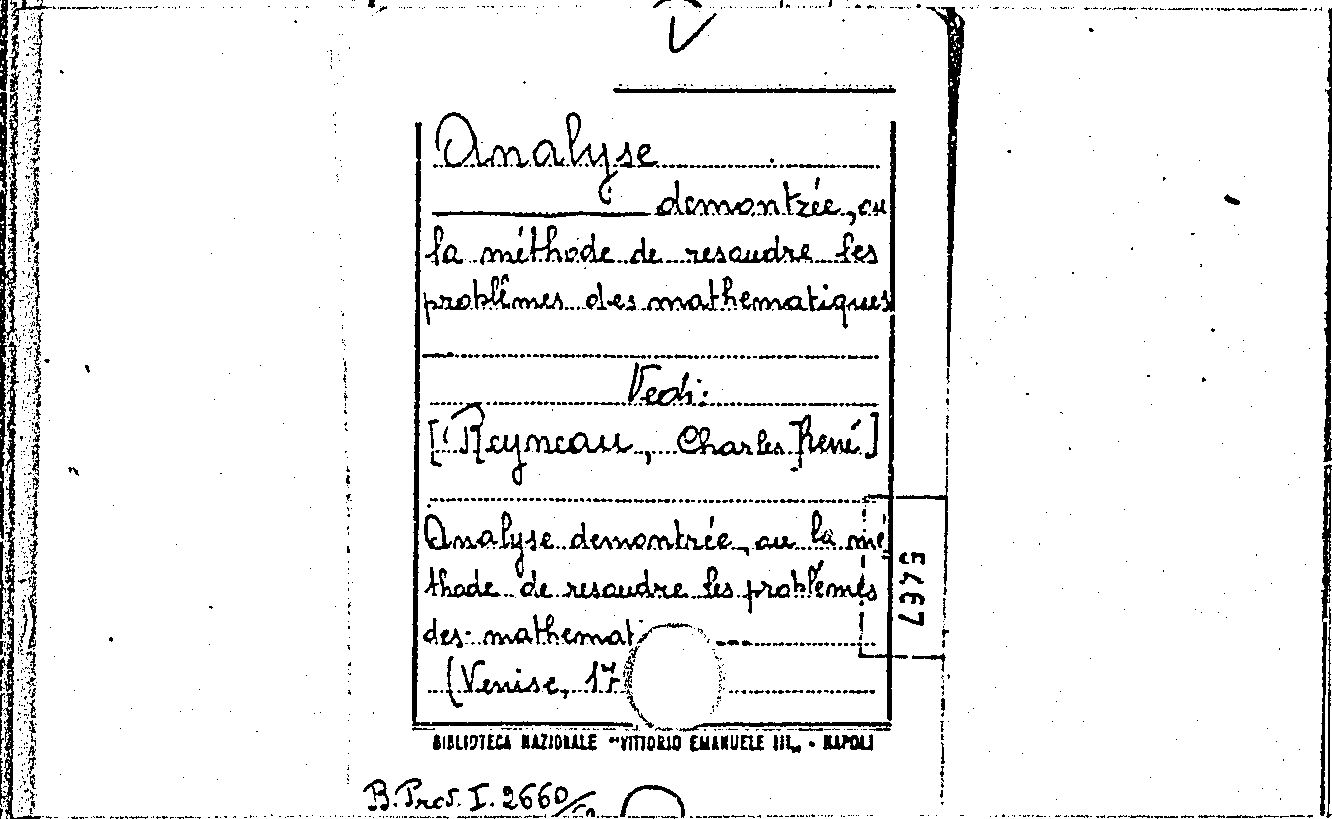 Analyse
demontrée, ou
la méthode de resoudre les
problêmes des mathematiques
Vedi:
[Reyneau, Charles René]
Analyse demontrée, ou la mé
thode de resoudre les problêmes
des mathemat
(Venise, 17
5467
BIBLIOTECA NAZIONALE "VITTORIO EMANUELE III" - NAPOLI
B. Prov. I. 2660